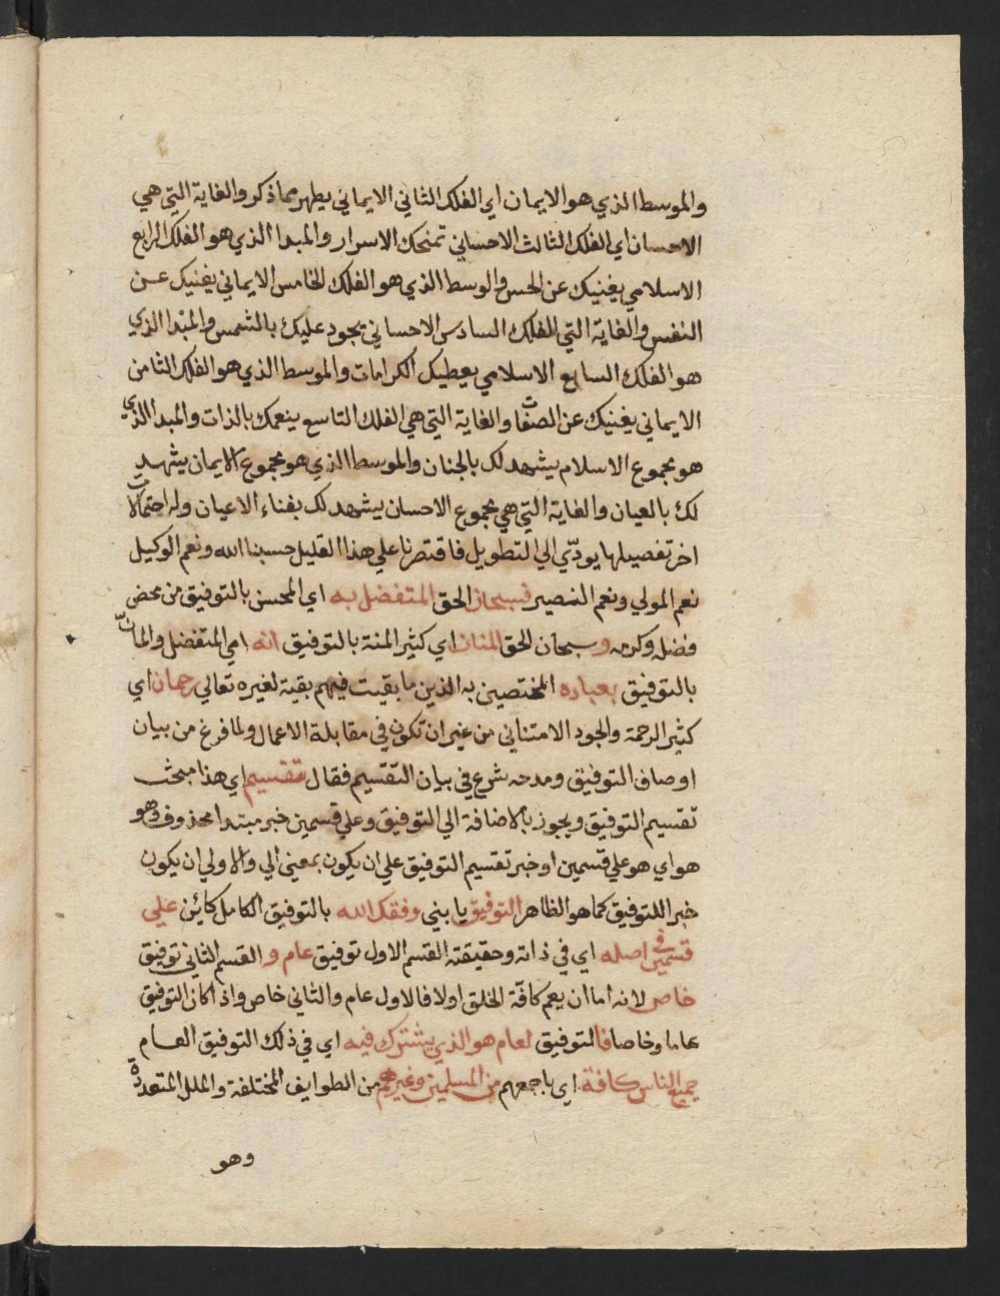 والموسط الذي هو الايمان اي الفلك الثاني الايماني يطهر مما ذكر والغاية التي هي
الاحسان اي الفلك الثالث الاحساني تمنحك الاسرار والمبدا الذي هو الفلك الرابع
الاسلامي يغنيك عن الحس والوسط الذي هو الفلك الخامس الايماني يفنيك عن
النفس والغاية التي الفلك السادس الاحساني يجود عليك بالشمس والمبدا الذي
هو الفلك السابع الاسلامي يعطيك الكرامات والموسط الذي هو الفلك الثامن
الايماني يغنيك عن الصفات والغاية التي هي الفلك التاسع ينعمك بالذات والمبدا الذي
هو مجموع الاسلام يشهد لك بالجنان والموسط الذي هو مجموع الايمان يشهد
لك بالعيان والغاية التي هي مجموع الاحسان يشهد لك بفناء الاعيان وله احتمالات
اخر تفصيلها يودّي الي التطويل فاقتصرنا علي هذا القليل حسبنا الله ونعم الوكيل
نعم المولي ونعم النصير فسبحان الحق المتفضل به اي المحسن بالتوفيق من محض
فضله وكرمه وسبحان الحق المنان اي كثير المنة بالتوفيق انه اي المتفضل والمانّ
بالتوفيق بعباده المختصين به الذين ما بقيت فيهم بقية لغيره تعالي رحمان اي
كثير الرحمة والجود الامتناني من غير ان تكون في مقابلة الاعمال ولما فرغ من بيان
اوصاف التوفيق ومدحه شرع في بيان التقسيم فقال تقسيم اي هذا مبحث
تقسيم التوفيق ويجوز بالاضافة الي التوفيق وعلي قسمين خبر مبتدا محذوف وهو
هو اي هو علي قسمين او خبر تقسيم التوفيق علي ان يكون بمعني الي والاولي ان يكون
خبرا للتوفيق كما هو الظاهر التوفيق يا بني وفقك الله بالتوفيق الكامل كائن علي
قسمين في اصله اي في ذاته وحقيقته القسم الاول توفيق عام و القسم الثاني توفيق
خاص لانه اما ان يعم كافة الخلق اولا فالاول عام والثاني خاص واذا كان التوفيق
عاما وخاصا فالتوفيق لعام هو الذي يشترك فيه اي في ذلك التوفيق العام
جميع الناس كافة اي باجمعهم من المسلمين وغيرهم من الطوايف المختلفة والملل المتعددة
وهو